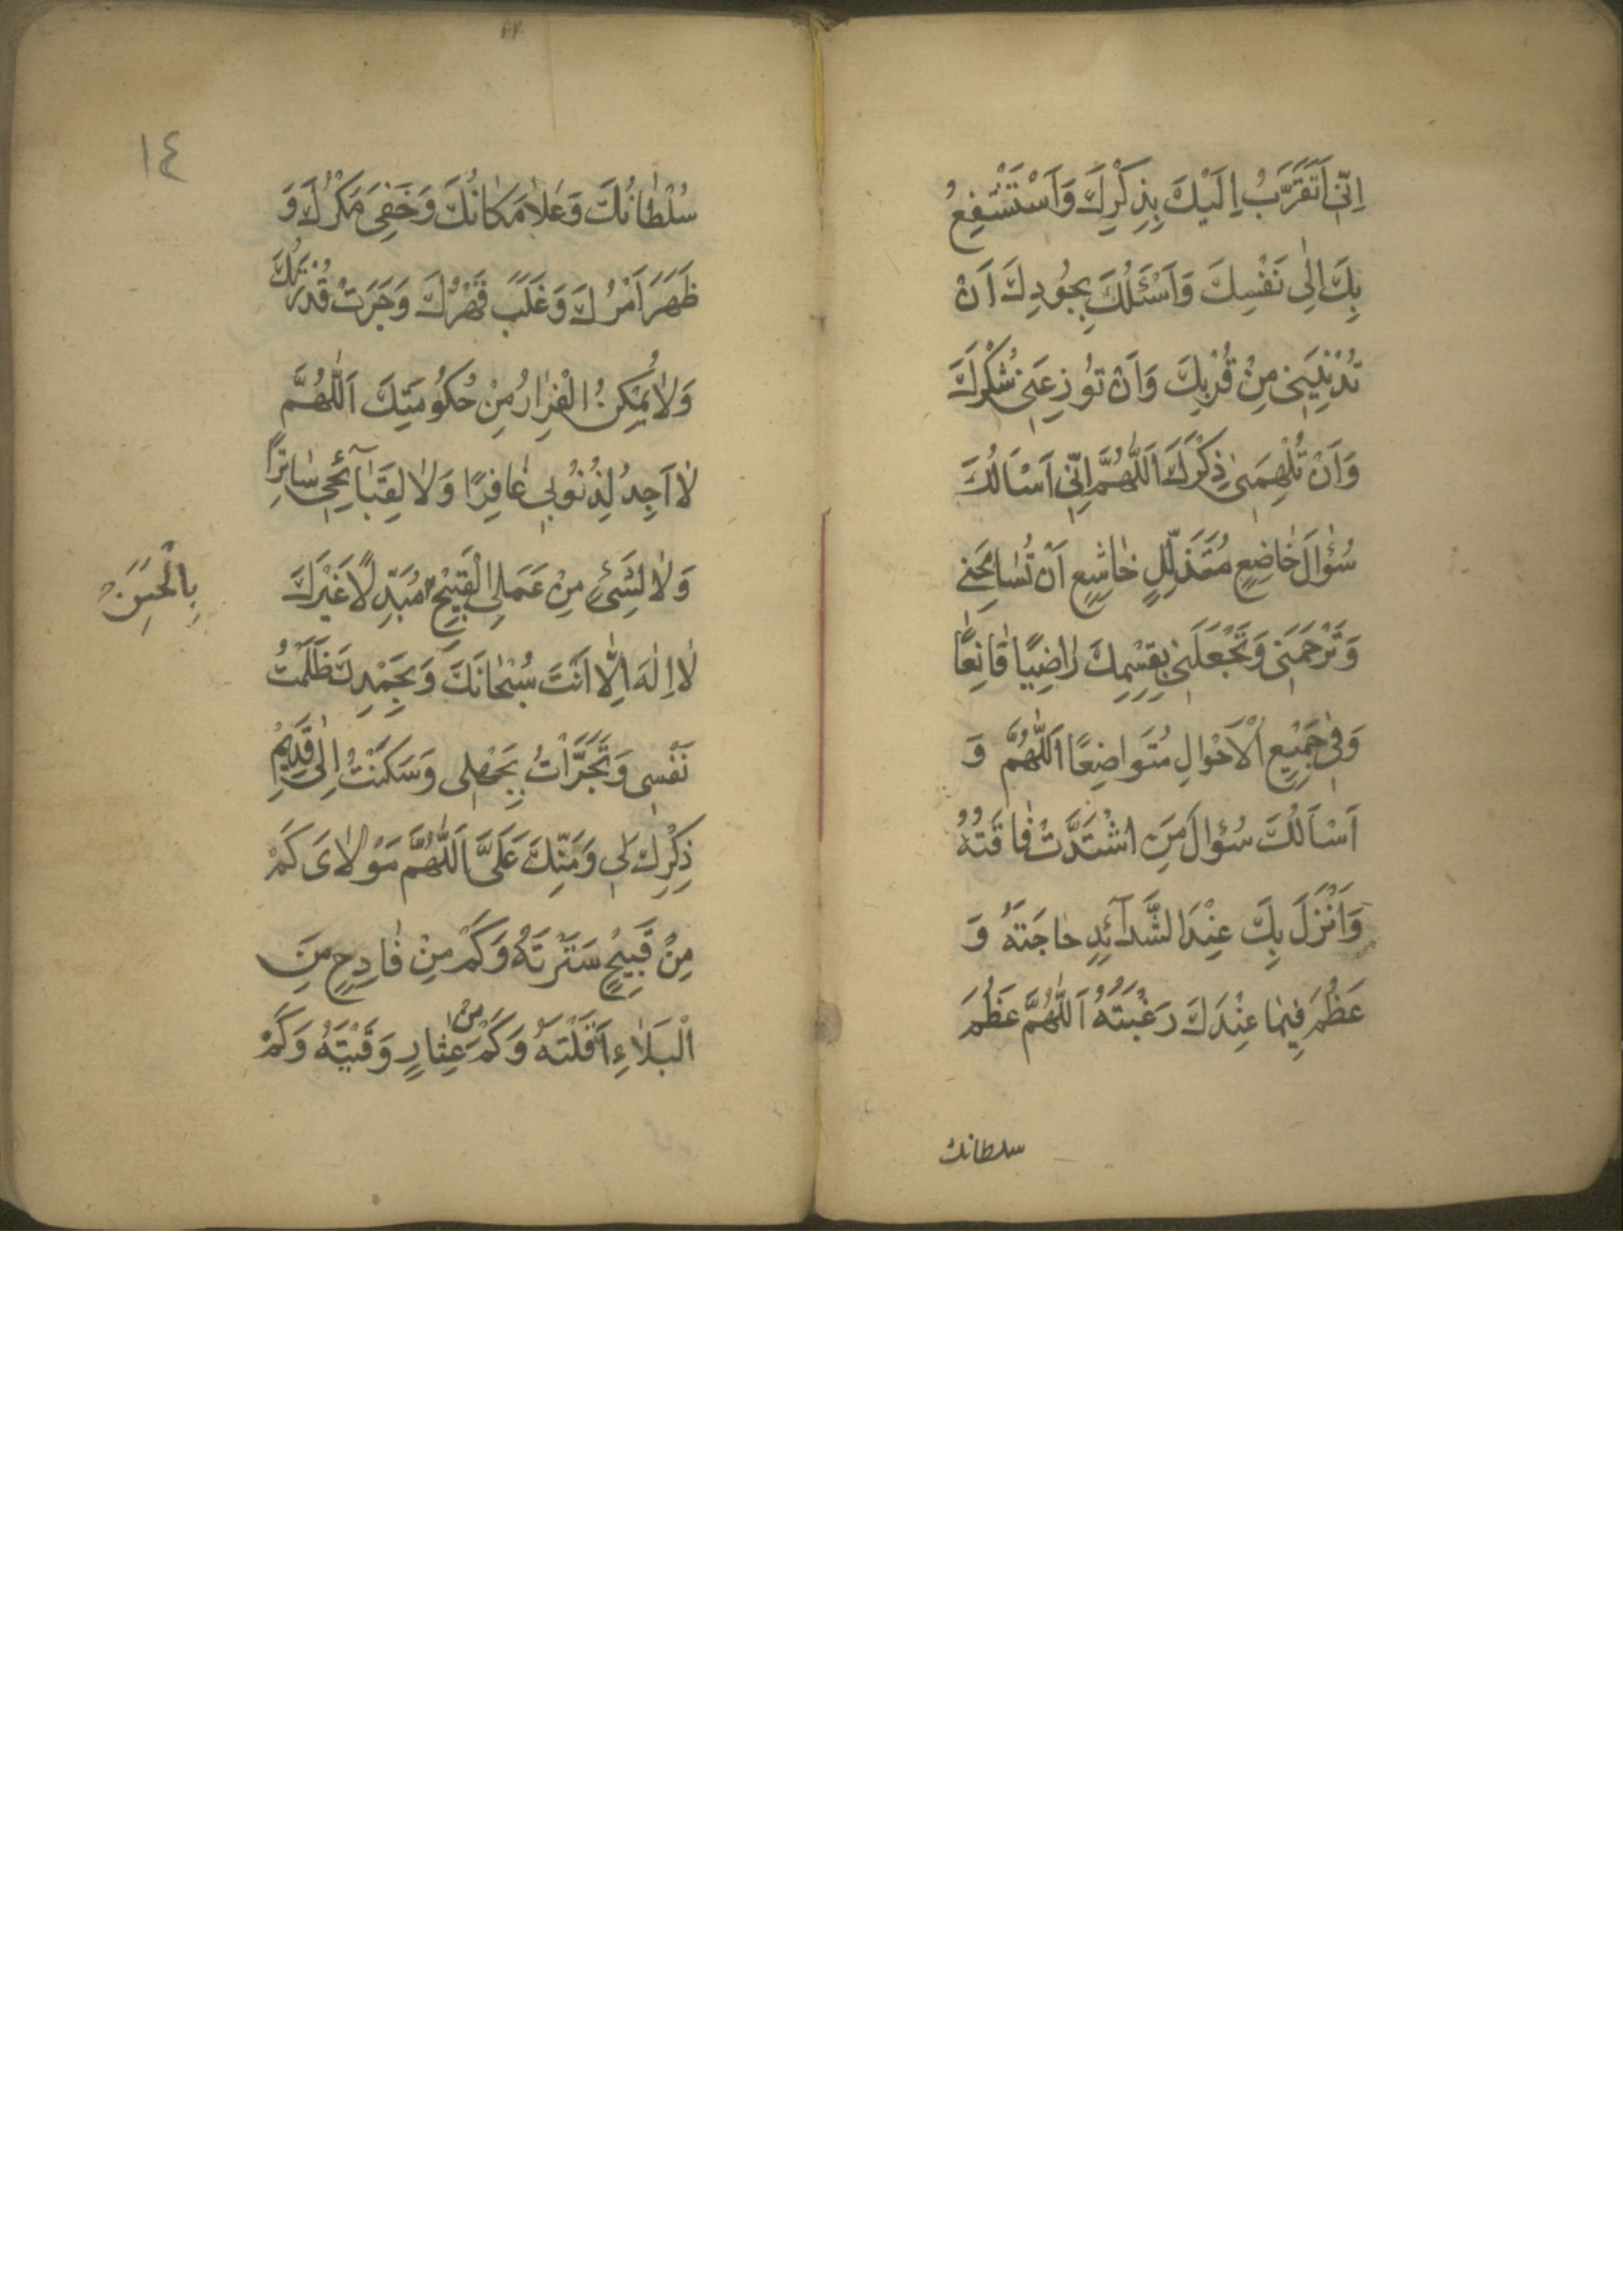 اِنّي اَتَقَرَّبُ اِلَيْكَ بِذِكْرِكَ وَاَسْتَشْفِعُ
بِكَ اِلٰى نَفْسِكَ وَاَسْئَلُكَ بِجُودِكَ اَنْ
تُدْنِيَنِى مِنْ قُرْبِكَ وَاَنْ تُوزِعَنِى شُكْرَكَ
وَاَنْ تُلْهِمَنِى ذِكْرَكَ اَللّٰهُمَّ اِنّي اَسْاَلُكَ
سُؤٰالَ خٰاضِعٍ مُتَذَلِّلٍ خٰاشِعٍ اَنْ تُسٰامِحَنِي
وَتَرْحَمَنِى وَتَجْعَلَنِى بِقِسْمِكَ رٰاضِيًا قٰانِعًا
وَفِى جَمِيْعِ الْاَحْوٰالِ مُتَوٰاضِعًا اَللّٰهُمَّ وَ
اَسْاَلُكَ سُؤٰالَ مَنِ اشْتَدَّتْ فٰاقَتُهُ
وَاَنْزَلَ بِكَ عِنْدَ الشَّدٰآئِدِ حٰاجَتَهُ وَ
عَظُمَ فِيمٰا عِنْدَكَ رَغْبَتُهُ اَللّٰهُمَّ عَظُمَ
سلطانك
١٤
سُلْطٰانُكَ وَعَلٰا مَكٰانُكَ وَخَفِىَ مَكْرُكَ وَ
ظَهَرَ اَمْرُكَ وَغَلَبَ قَهْرُكَ وَجَرَتْ قُدْرَتُكَ
وَلٰا يُمْكِنُ الْفِرٰارُ مِنْ حُكُومَتِكَ اَللّٰهُمَّ
لٰا اَجِدُ لِذُنُوبِي غٰافِرًا وَلٰا لِقَبٰآئِحِى سٰاتِرًا
وَلٰا لِشَىْءٍ مِنْ عَمَلِىَ الْقَبِيْحِ مُبَدِّلًا غَيْرَكَ
بِالْحَسَنْ
لٰا اِلٰهَ اِلَّا اَنْتَ سُبْحٰانَكَ وَبِحَمْدِكَ ظَلَمْتُ
نَفْسِى وَتَجَرَّاْتُ بِجَهْلِى وَسَكَنْتُ اِلٰى قَدِيْمِ
ذِكْرِكَ لِي وَمَنِّكَ عَلَىَّ اَللّٰهُمَّ مَوْلٰاىَ كَمْ
مِنْ قَبِيْحٍ سَتَرْتَهُ وَكَمْ مِنْ فٰادِحٍ مِنَ
الْبَلٰاءِ اَقَلْتَهُ وَكَمْ مِنْ عِثٰارٍ وَقَيْتَهُ وَكَمْ